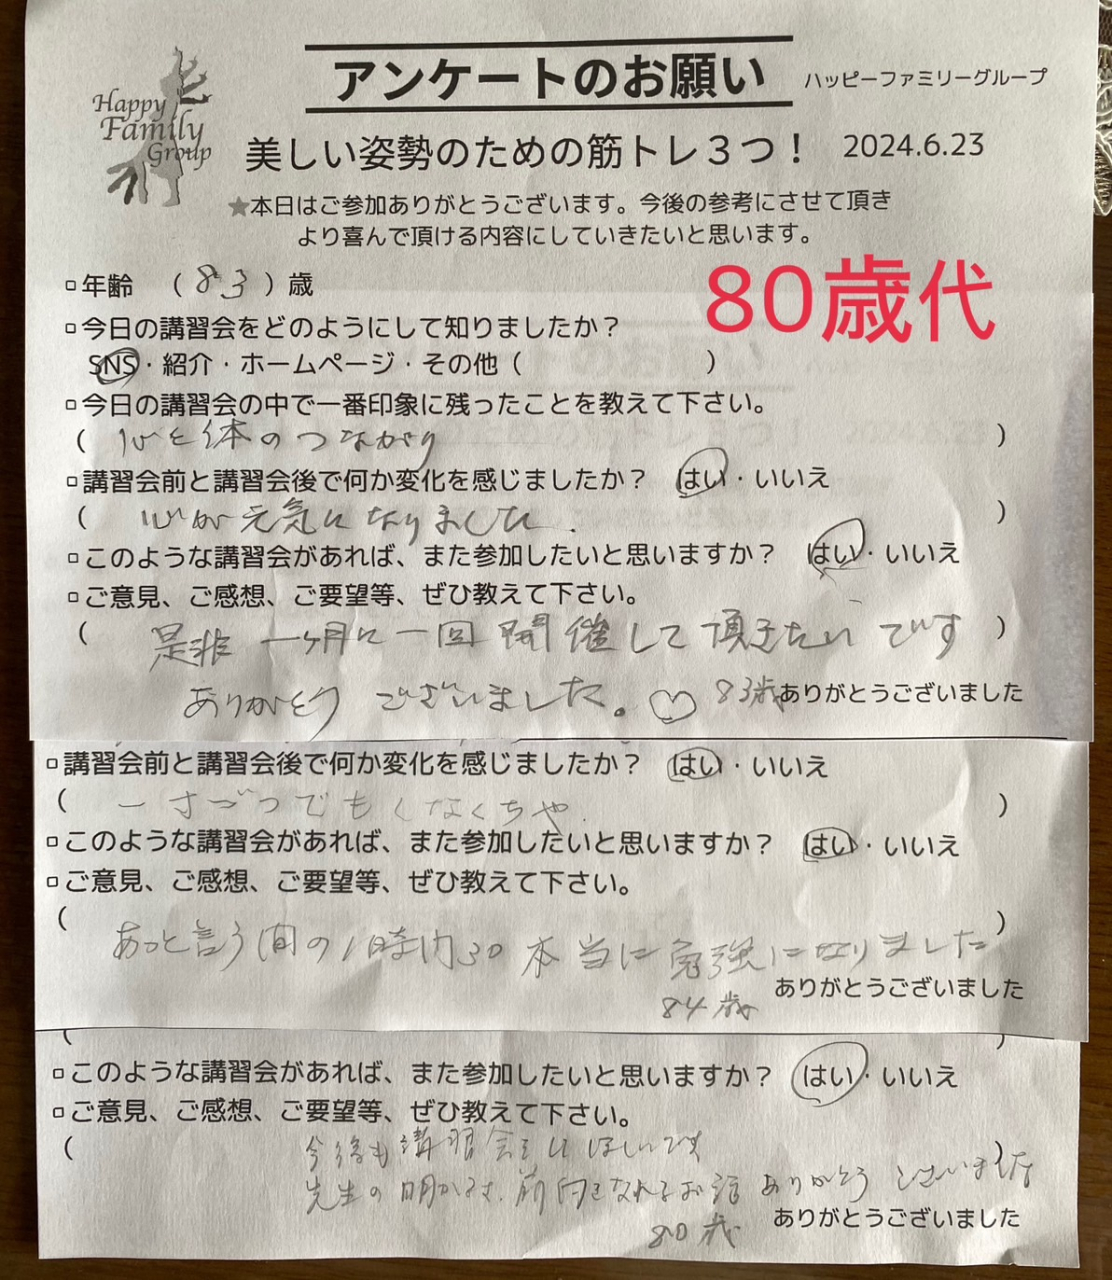 Happy
Family
Group
アンケートのお願い
ハッピーファミリーグループ
美しい姿勢のための筋トレ３つ！ 2024.6.23
★本日はご参加ありがとうございます。今後の参考にさせて頂き
より喜んで頂ける内容にしていきたいと思います。
80歳代
▫年齢 （83）歳
▫今日の講習会をどのようにして知りましたか？
SNS・紹介・ホームページ・その他（ ）
▫今日の講習会の中で一番印象に残ったことを教えて下さい。
（心と体のつながり）
▫講習会前と講習会後で何か変化を感じましたか？ はい・いいえ
（心が元気になりました.）
▫このような講習会があれば、また参加したいと思いますか？ はい・いいえ
▫ご意見、ご感想、ご要望等、ぜひ教えて下さい。
（是非一ヶ月に一回開催して頂きたいです）
ありがとうございました。♡ 83歳
ありがとうございました
▫講習会前と講習会後で何か変化を感じましたか？ はい・いいえ
（一すづつでもしなくちゃ.）
▫このような講習会があれば、また参加したいと思いますか？ はい・いいえ
▫ご意見、ご感想、ご要望等、ぜひ教えて下さい。
（あっと言う間の1時間30本当に勉強になりました）
84歳
ありがとうございました
▫このような講習会があれば、また参加したいと思いますか？ はい・いいえ
▫ご意見、ご感想、ご要望等、ぜひ教えて下さい。
（今後も講習会をしてほしいです）
先生の明かるさ、前向きなれるお話ありがとうございました
80歳
ありがとうございました